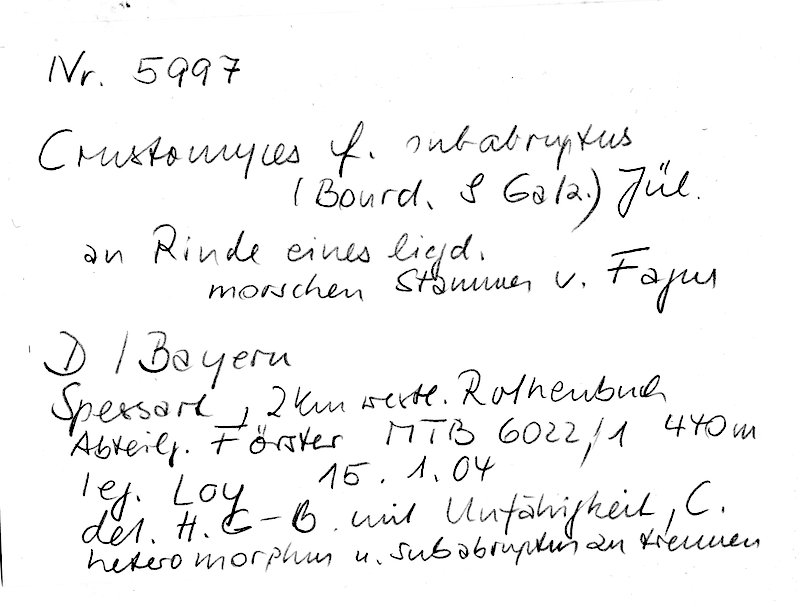 Nr. 5997
Crustomyces f. subabruptus
(Bourd. & Galz.) Jül.
an Rinde eines liegd.
morschen Stammes v. Fagus
D / Bayern
Spessart, 2 km westl. Rothenbuch
Abteilg. Förster MTB 6022/1 440 m
leg. Loy 15. 1. 04
det. H. G-B mit Unfähigkeit, C.
heteromorphum u. subabruptus zu trennen